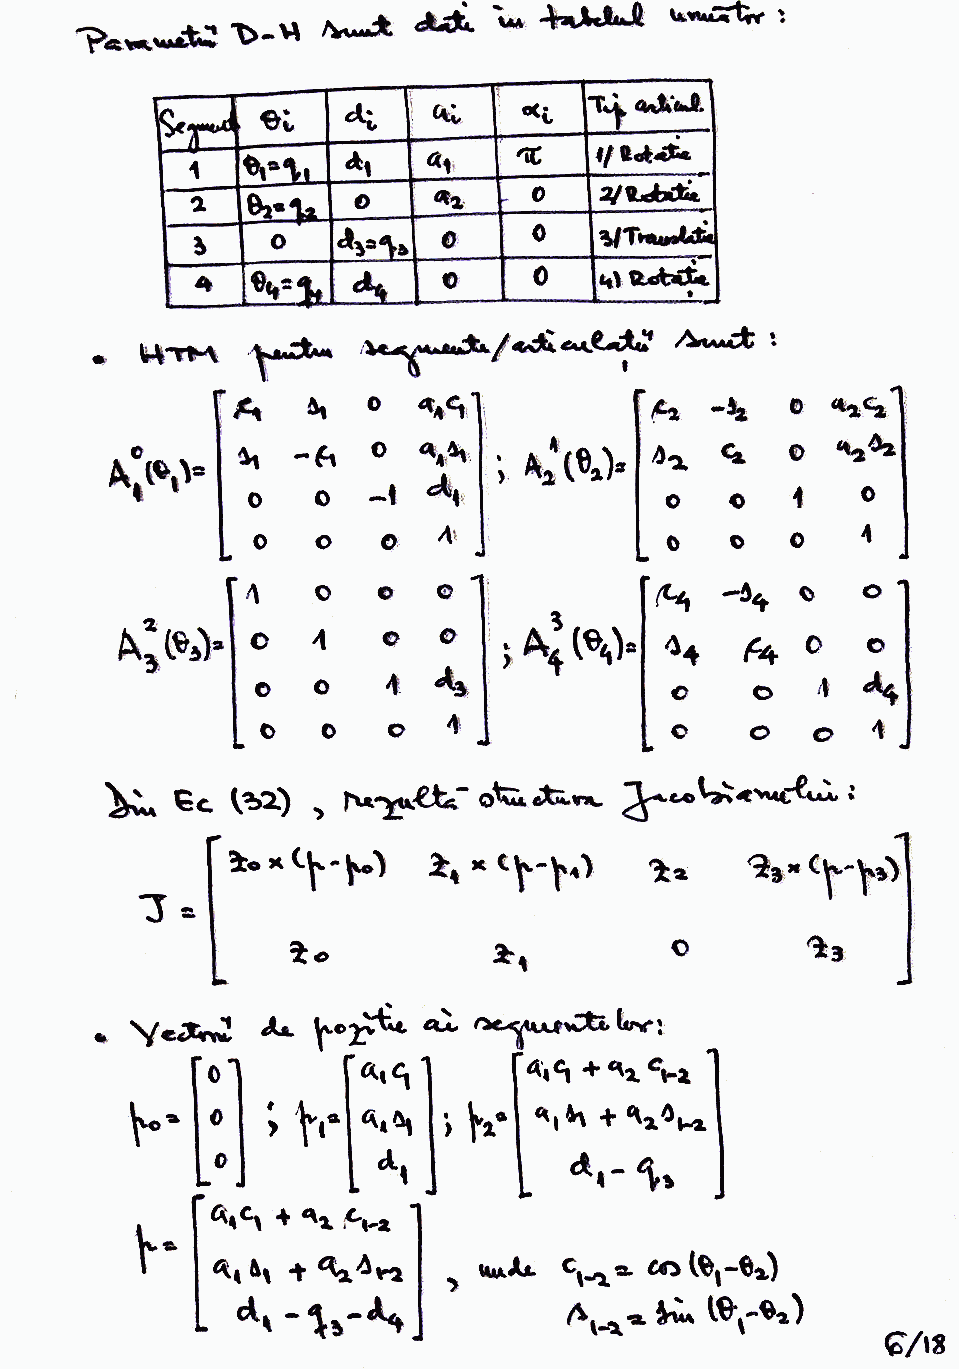 Parametrii D-H sunt dati in tabelul urmator :
Segment θi di ai αi Tip articul.
1 θ1=q1 d1 a1 π 1/ Rotatie
2 θ2=q2 0 a2 0 2/ Rotatie
3 0 d3=q3 0 0 3/ Translatie
4 θ4=q4 d4 0 0 4) Rotatie
• HTM pentru segmente/articulații sunt :
A₁⁰(θ1)= [ c1 s1 0 a1c1 ; A₂¹(θ2)= [ c2 -s2 0 a2c2
s1 -c1 0 a1s1 s2 c2 0 a2s2
0 0 -1 d1 0 0 1 0
0 0 0 1 ] 0 0 0 1 ]
A₃²(θ3)= [ 1 0 0 0 ; A₄³(θ4)= [ c4 -s4 0 0
0 1 0 0 s4 c4 0 0
0 0 1 d3 0 0 1 d4
0 0 0 1 ] 0 0 0 1 ]
Din Ec (32) , rezultă structura Jacobianului :
J = [ z0 × (p-p0) z1 × (p-p1) z2 z3 × (p-p3)
z0 z1 0 z3 ]
• Vectorii de poziție ai segmentelor:
p0 = [ 0 ; p1 = [ a1c1 ; p2 = [ a1c1 + a2 c1-2
0 a1s1 a1s1 + a2 s1-2
0 ] d1 ] d1 - q3 ]
p = [ a1c1 + a2 c1-2
a1s1 + a2 s1-2
d1 - q3 - d4 ] , unde c1-2 = cos (θ1-θ2)
s1-2 = sin (θ1-θ2)
6/18